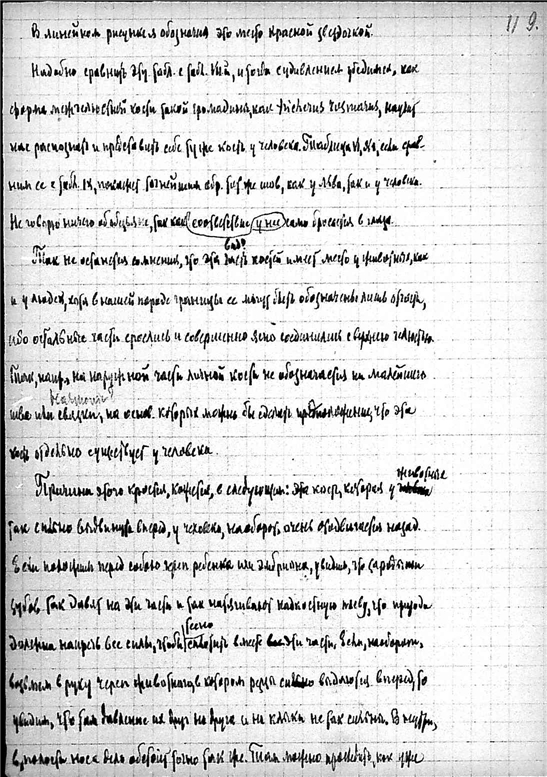 119.
В линейном рисунке я обозначил это место красной звездочкой.
Надобно сравнить эту табл. с табл. и тогда с удивлением убедимся, как
форма межчелюстной кости такой громадины, как Trichechus rosmarus, научит
нас распознать и представить себе ту же кость у человека. Таблица VI, если срав-
ним ее с табл. IX, покажет точнейшим обр. тот же шов, как у льва, так и у человека.
Не говорю ничего об обезьяне, так как соответствие у нее само бросается в глаза.
видо
Так не останется сомнения, что эта часть костей имеет место у животных, как
и у людей, хотя в нашей породе границы ее могут быть обозначены лишь отчасти,
ибо остальные части срослись и совершенно ясно соединились с верхнею челюстью.
Так, напр., на наружной части личной кости не обозначается ни малейшего
Harmonie?
шва или связки, на основ. которых можно бы сделать предположение, что эта
кость отдельно существует у человека.
Причина этого кроется, кажется, в следующем: эта кость, которая у животных
так сильно выдвинута вперед, у человека, наоборот, очень отодвигается назад.
Если положим перед собою череп ребенка или эмбриона, увидим, что зародыши
зубов так давят на эти части и так натягивают надкостную плеву, что природа
тесно
должна напречь все силы, чтобы сплотить вместе эти части. Если, наоборот,
возьмем в руку череп животного, в котором резцы сильно выдаются вперед, то
увидим, что там давление их друг на друга и на клыки не так сильны. Внутри,
в полости носа дело обстоит точно так же. Там можно проследить, как уже